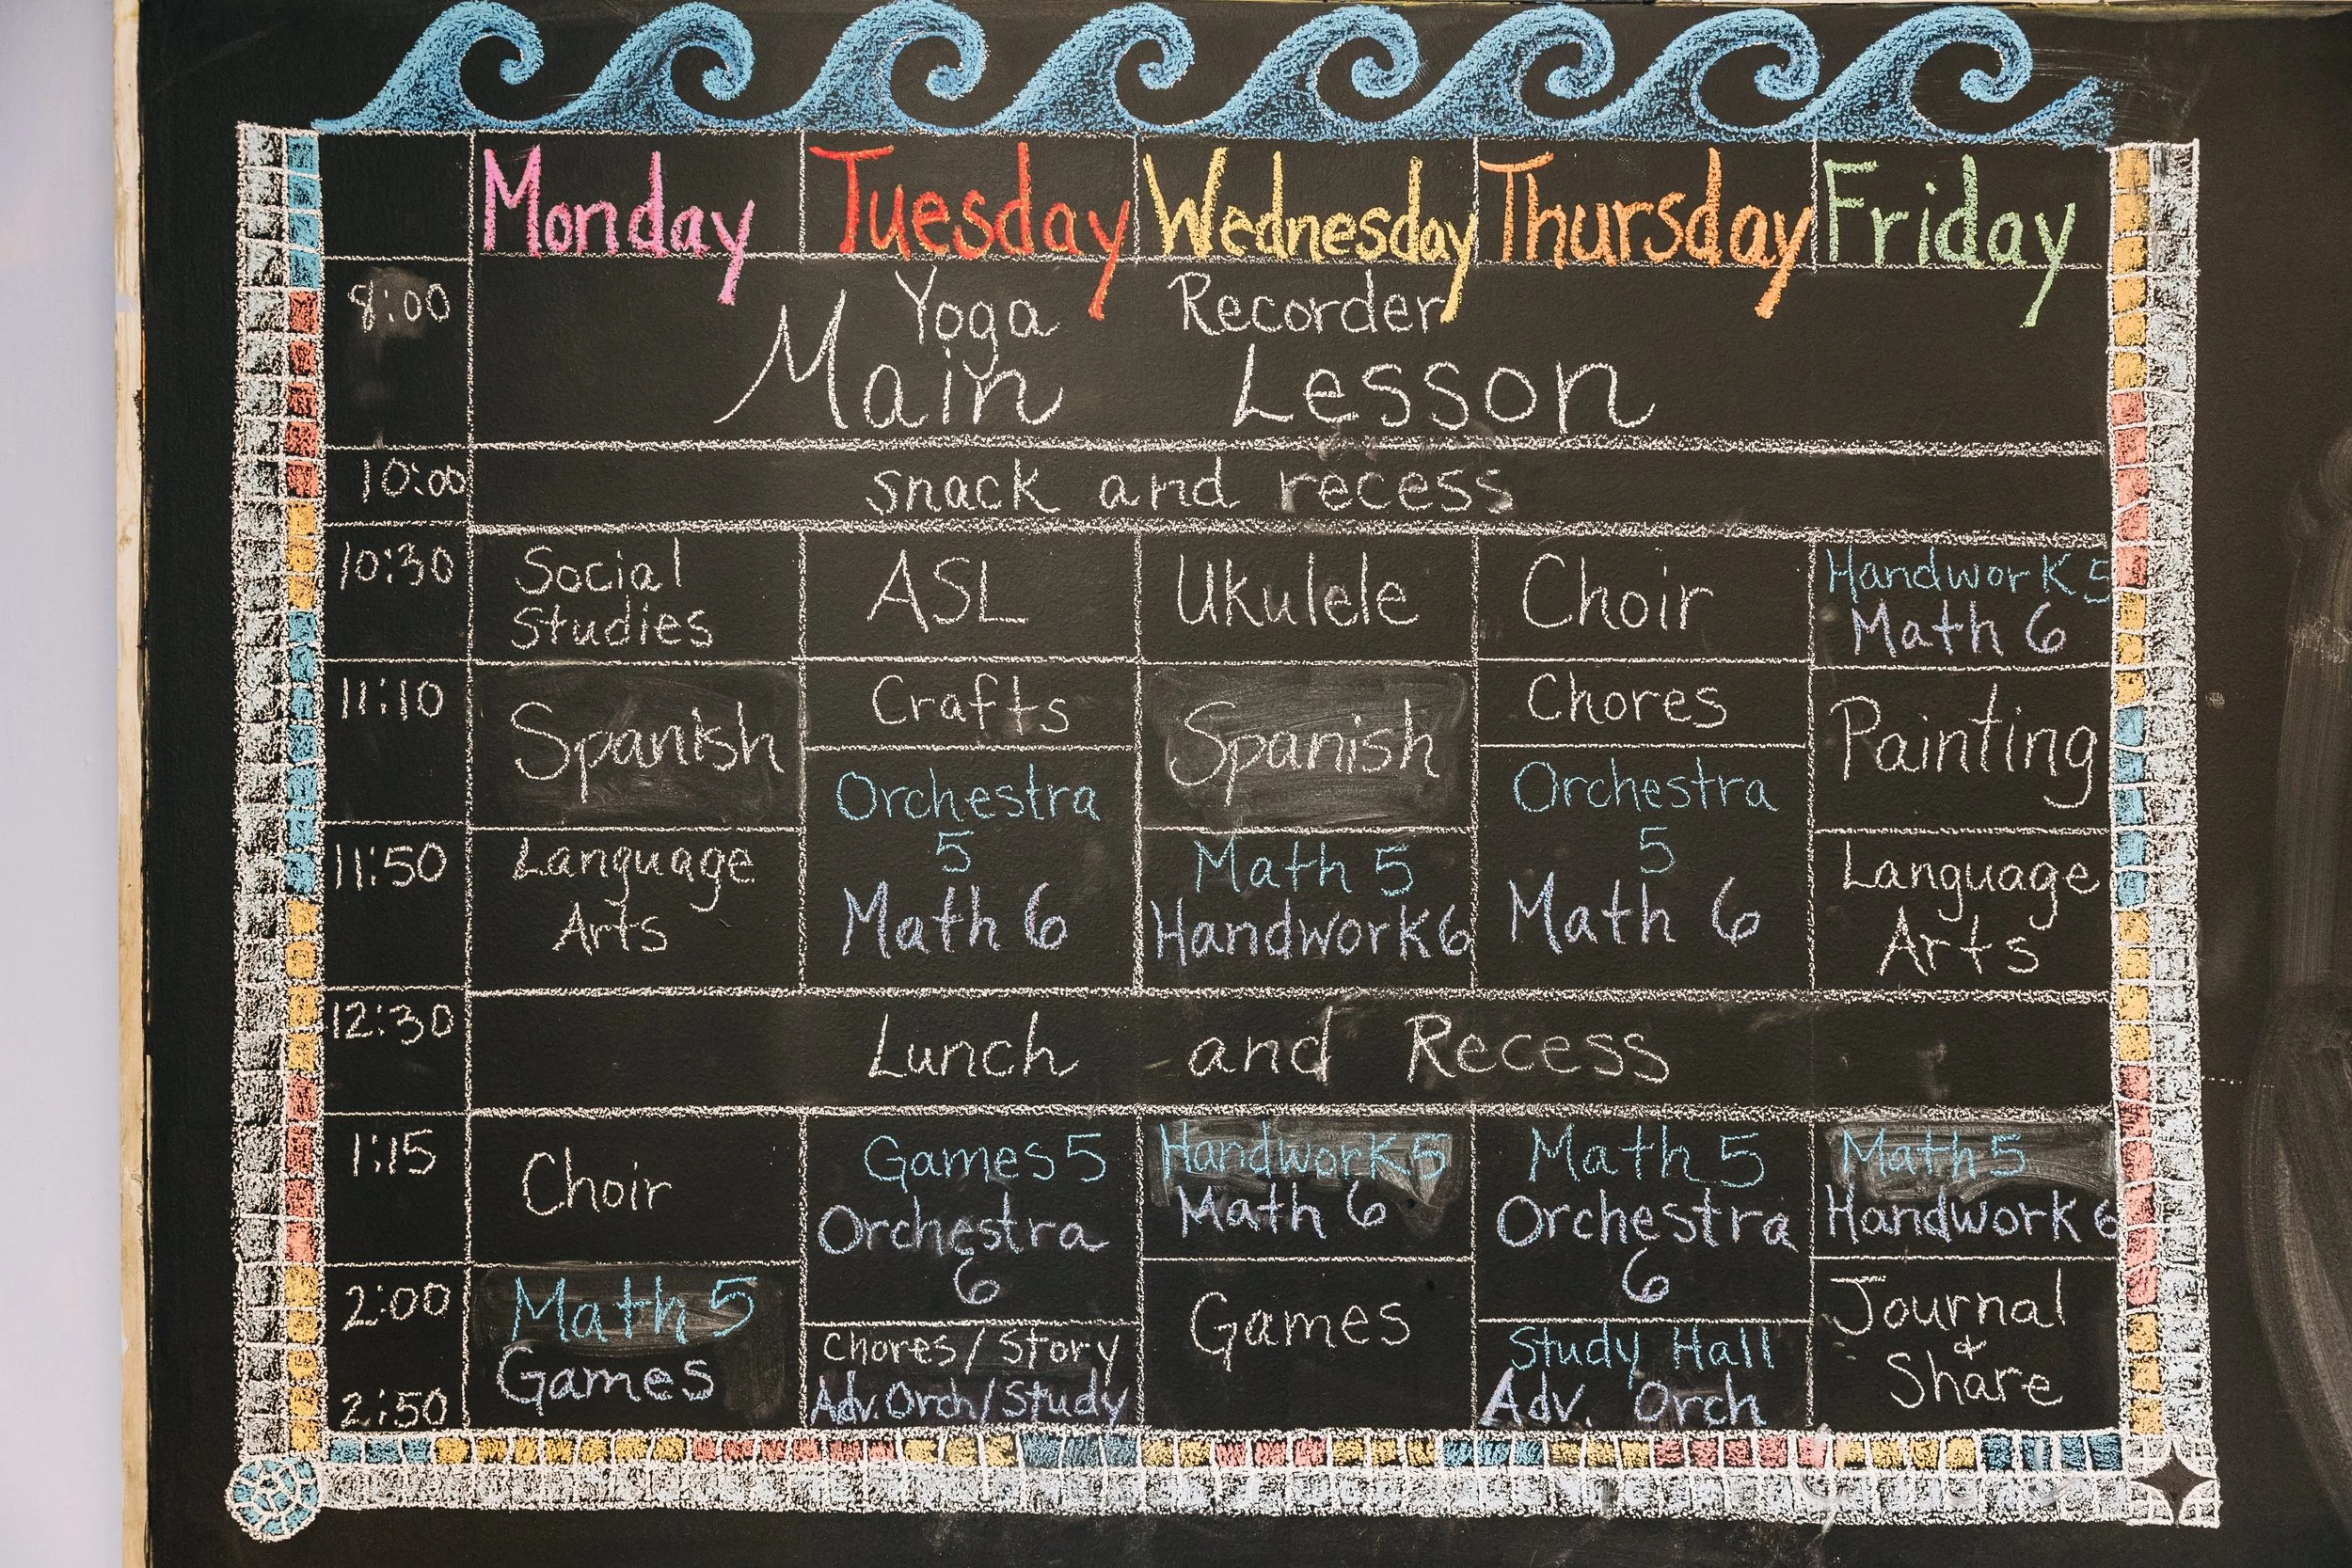 Monday Tuesday Wednesday Thursday Friday
8:00
Yoga Recorder
Main Lesson
10:00 snack and recess
10:30
Social
Studies
ASL
Ukulele
Choir
Handwork 5
Math 6
11:10
Spanish
Crafts
Spanish
Chores
Painting
11:50
Language
Arts
Orchestra
5
Math 6
Math 5
Handwork 6
Orchestra
5
Math 6
Language
Arts
12:30
Lunch and Recess
1:15
Choir
Games 5
Orchestra
6
Handwork 5
Math 6
Math 5
Orchestra
6
Math 5
Handwork 6
2:00
2:50
Math 5
Games
Chores / Story
Adv. Orch / Study
Games
Study Hall
Adv. Orch
Journal
&
Share